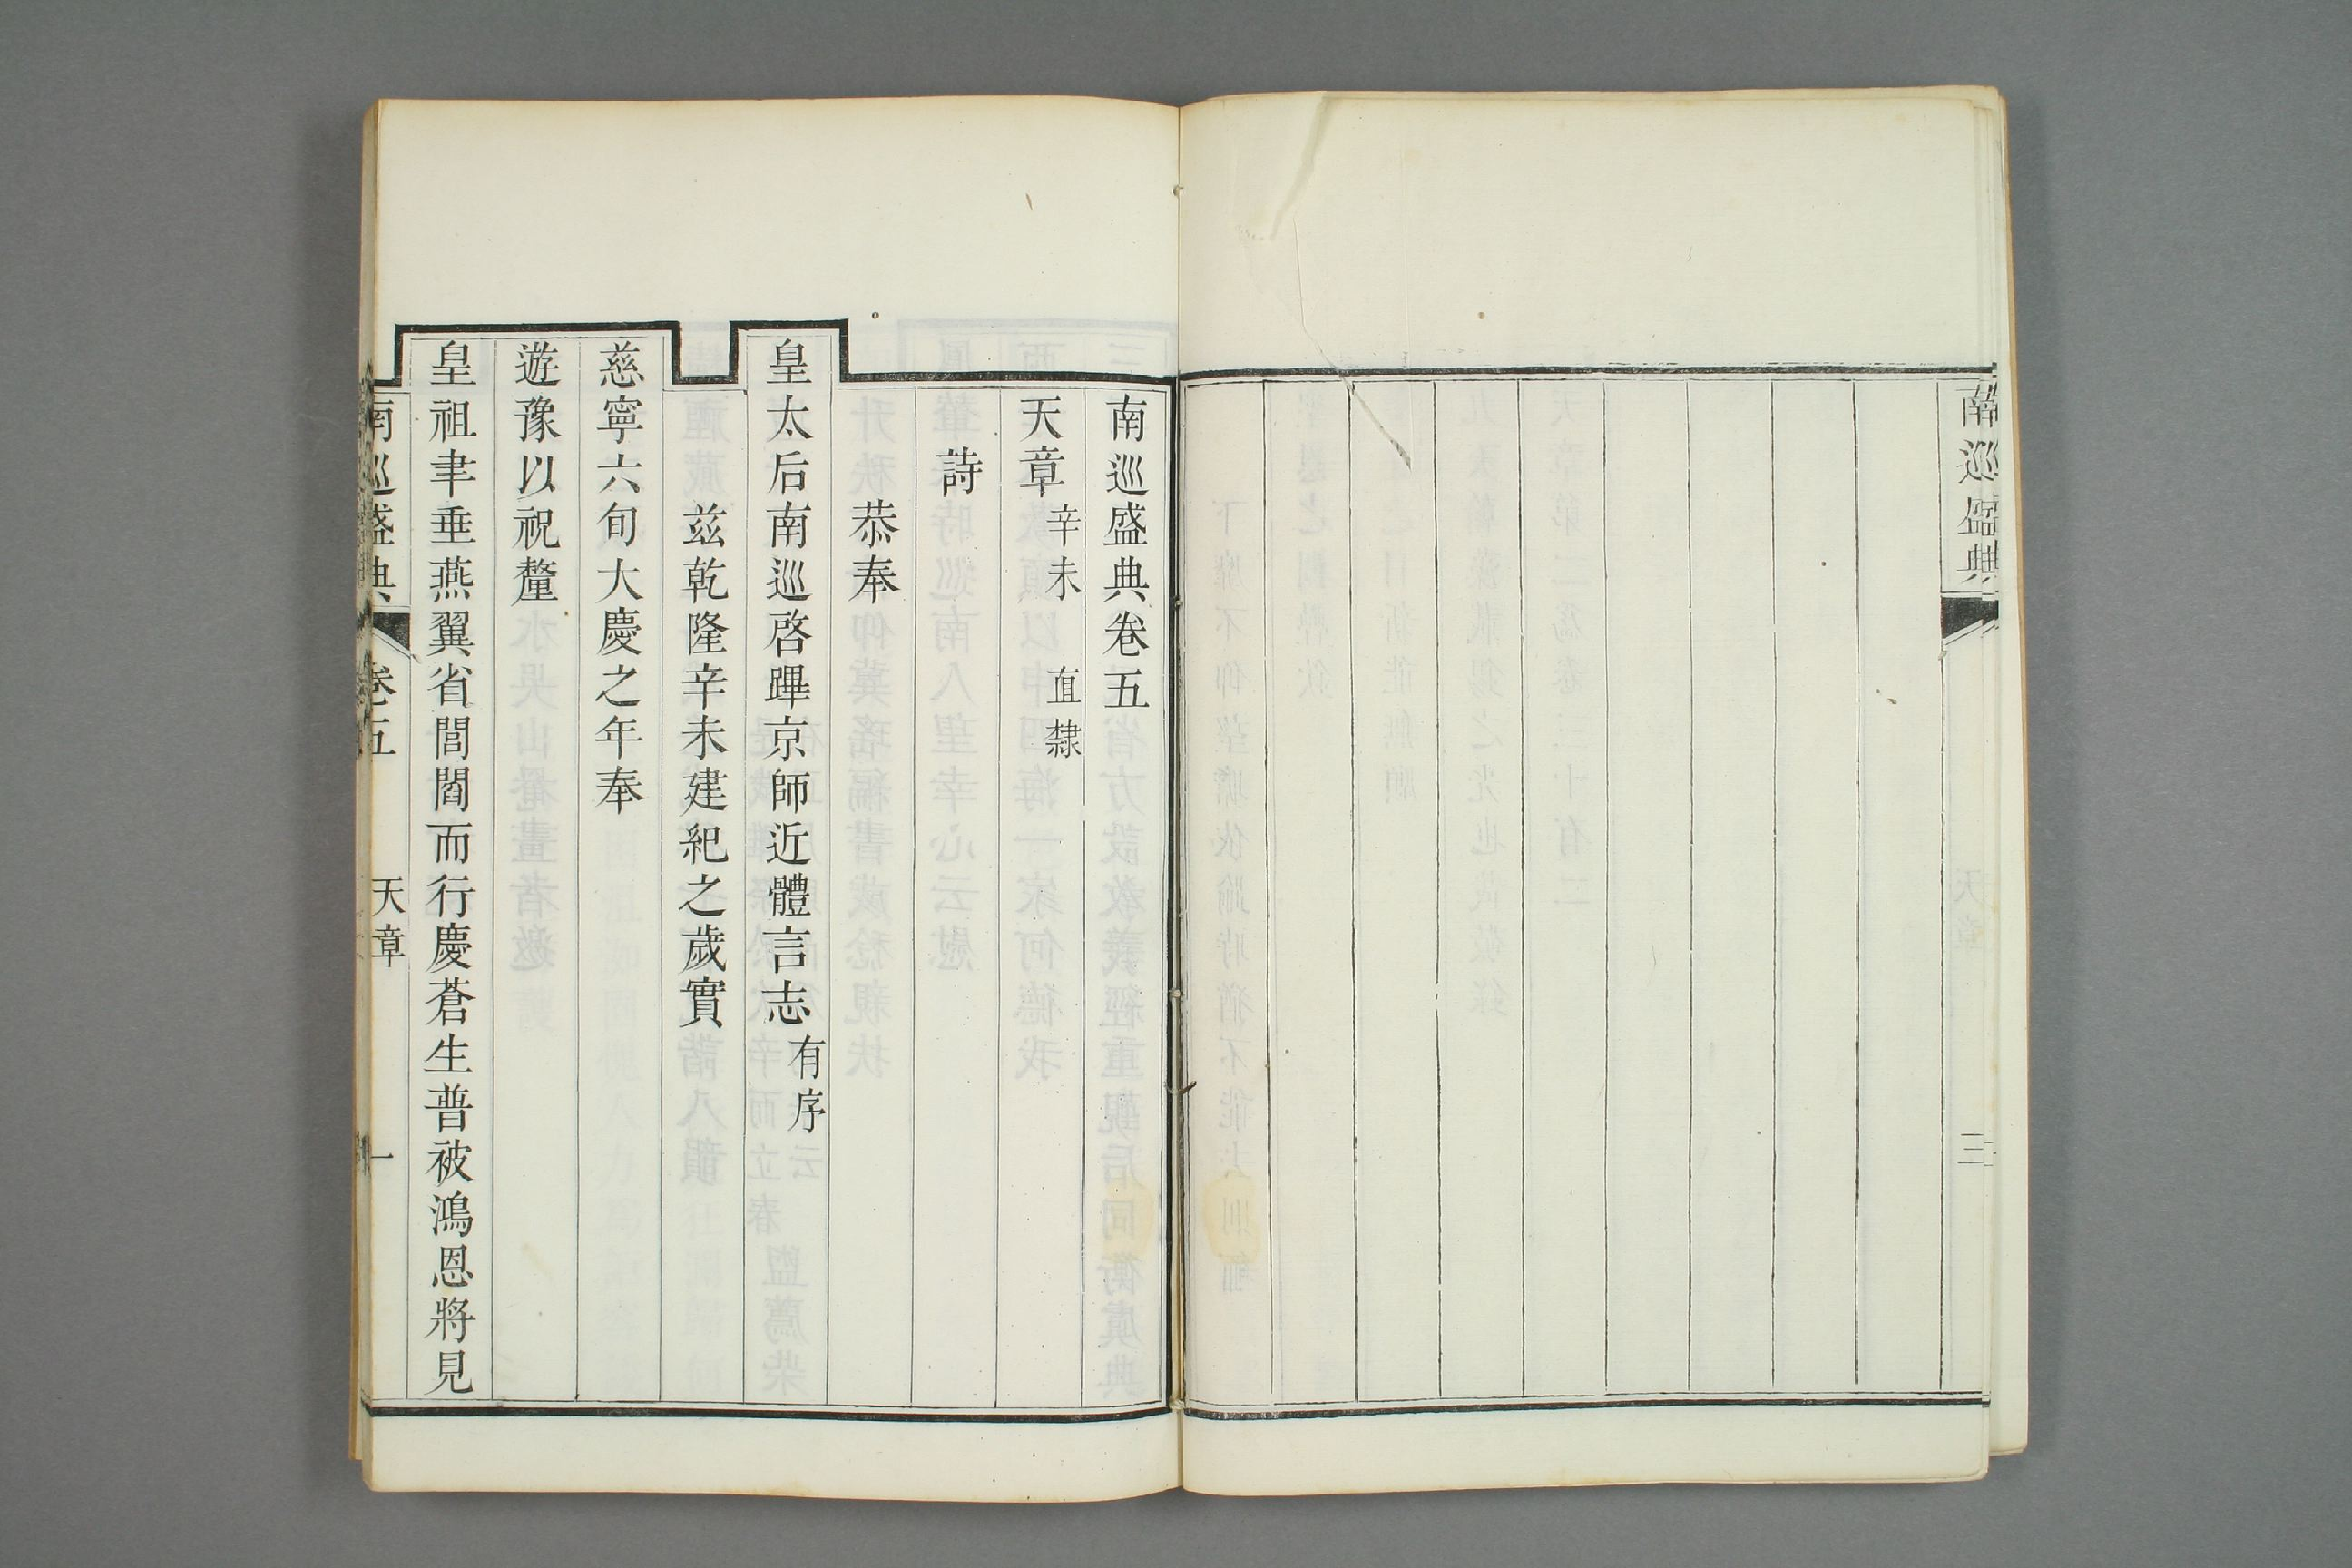 南巡盛典
三
南巡盛典卷五
天章 辛未 直隸
詩
恭奉
皇太后南巡啓蹕京師近體言志 有序
茲乾隆辛未建紀之歲實
慈寧六旬大慶之年奉
遊豫以祝釐
皇祖聿垂燕翼省閭閻而行慶蒼生普被鴻恩將見
南巡盛典 卷五 天章 一